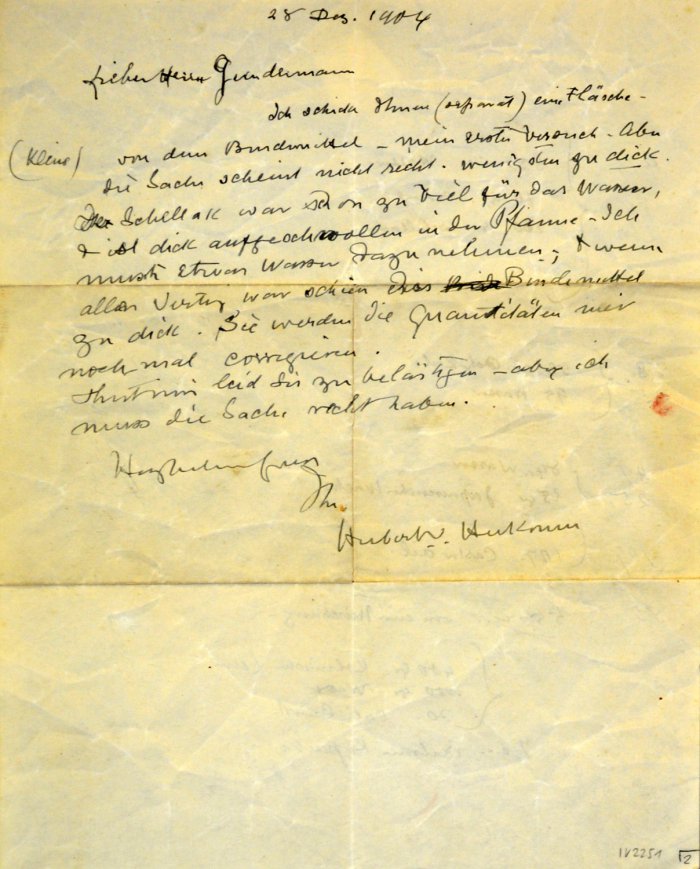 28 Dez. 1904
Lieber Herr Gundermann
Ich schicke Ihnen (separat) eine Flasche -
(kleine)
von dem Bindmittel - mein erster Versuch - Aber
die Sache scheint nicht recht. wenigsten zu dick.
Der Schellak war schon zu viel für das Wasser,
& ist dick aufgeschwollen in der Pfanne - Ich
musste Etwas Wasser dazu nehmen; & wenn
alles vertig war schien das Bindemittel
zu dick. Sie werden die Quantitäten mir
noch mal corrigieren.
Thut mir leid Sie zu belästigen - aber ich
muss die Sache recht haben.
Ihr.
Hubert v. Herkomer
IV2251
2